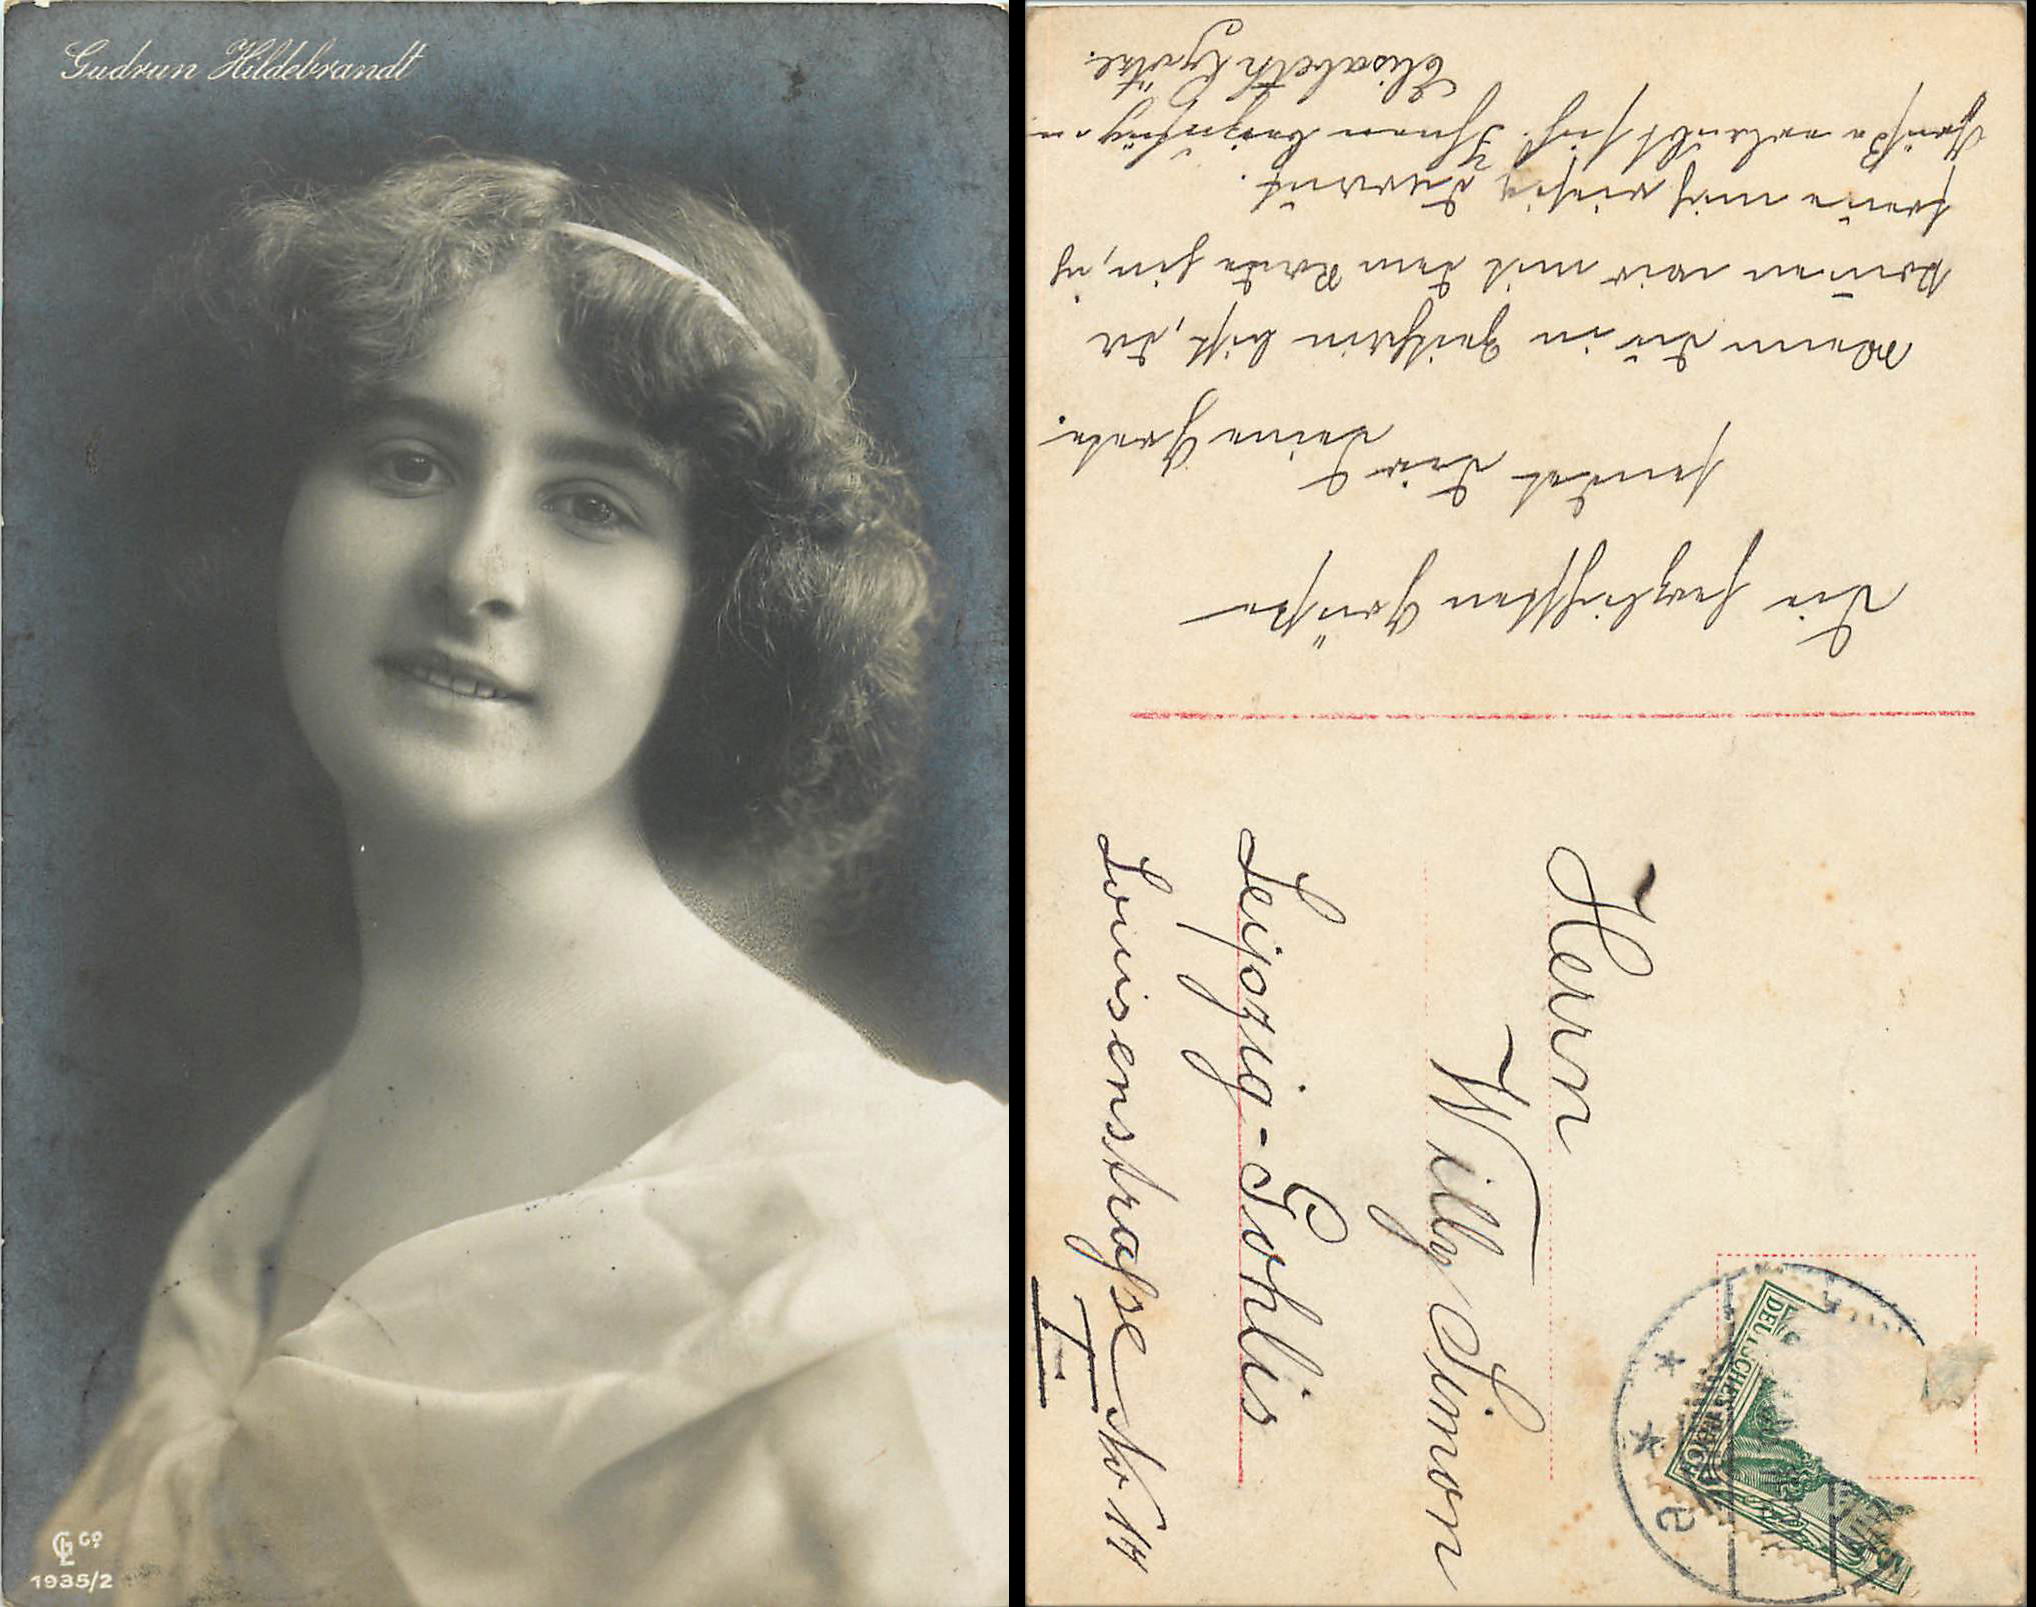 Gudrun Hildebrandt
GL Co
1935/2
Die herzlichsten Grüße
sendet Dir Deine Grete.
Wenn Du in Geithain bist, da
kommen wir mit dem Rade hin, ich
freue mich riesig darauf.
Grüße erlaubt sich Ihnen beizufügen
Elisabeth
Herrn
Willy Simon
Leipzig-Gohlis
Louisenstraße No 14
I
DEUTSCHES REICH
5
* * e